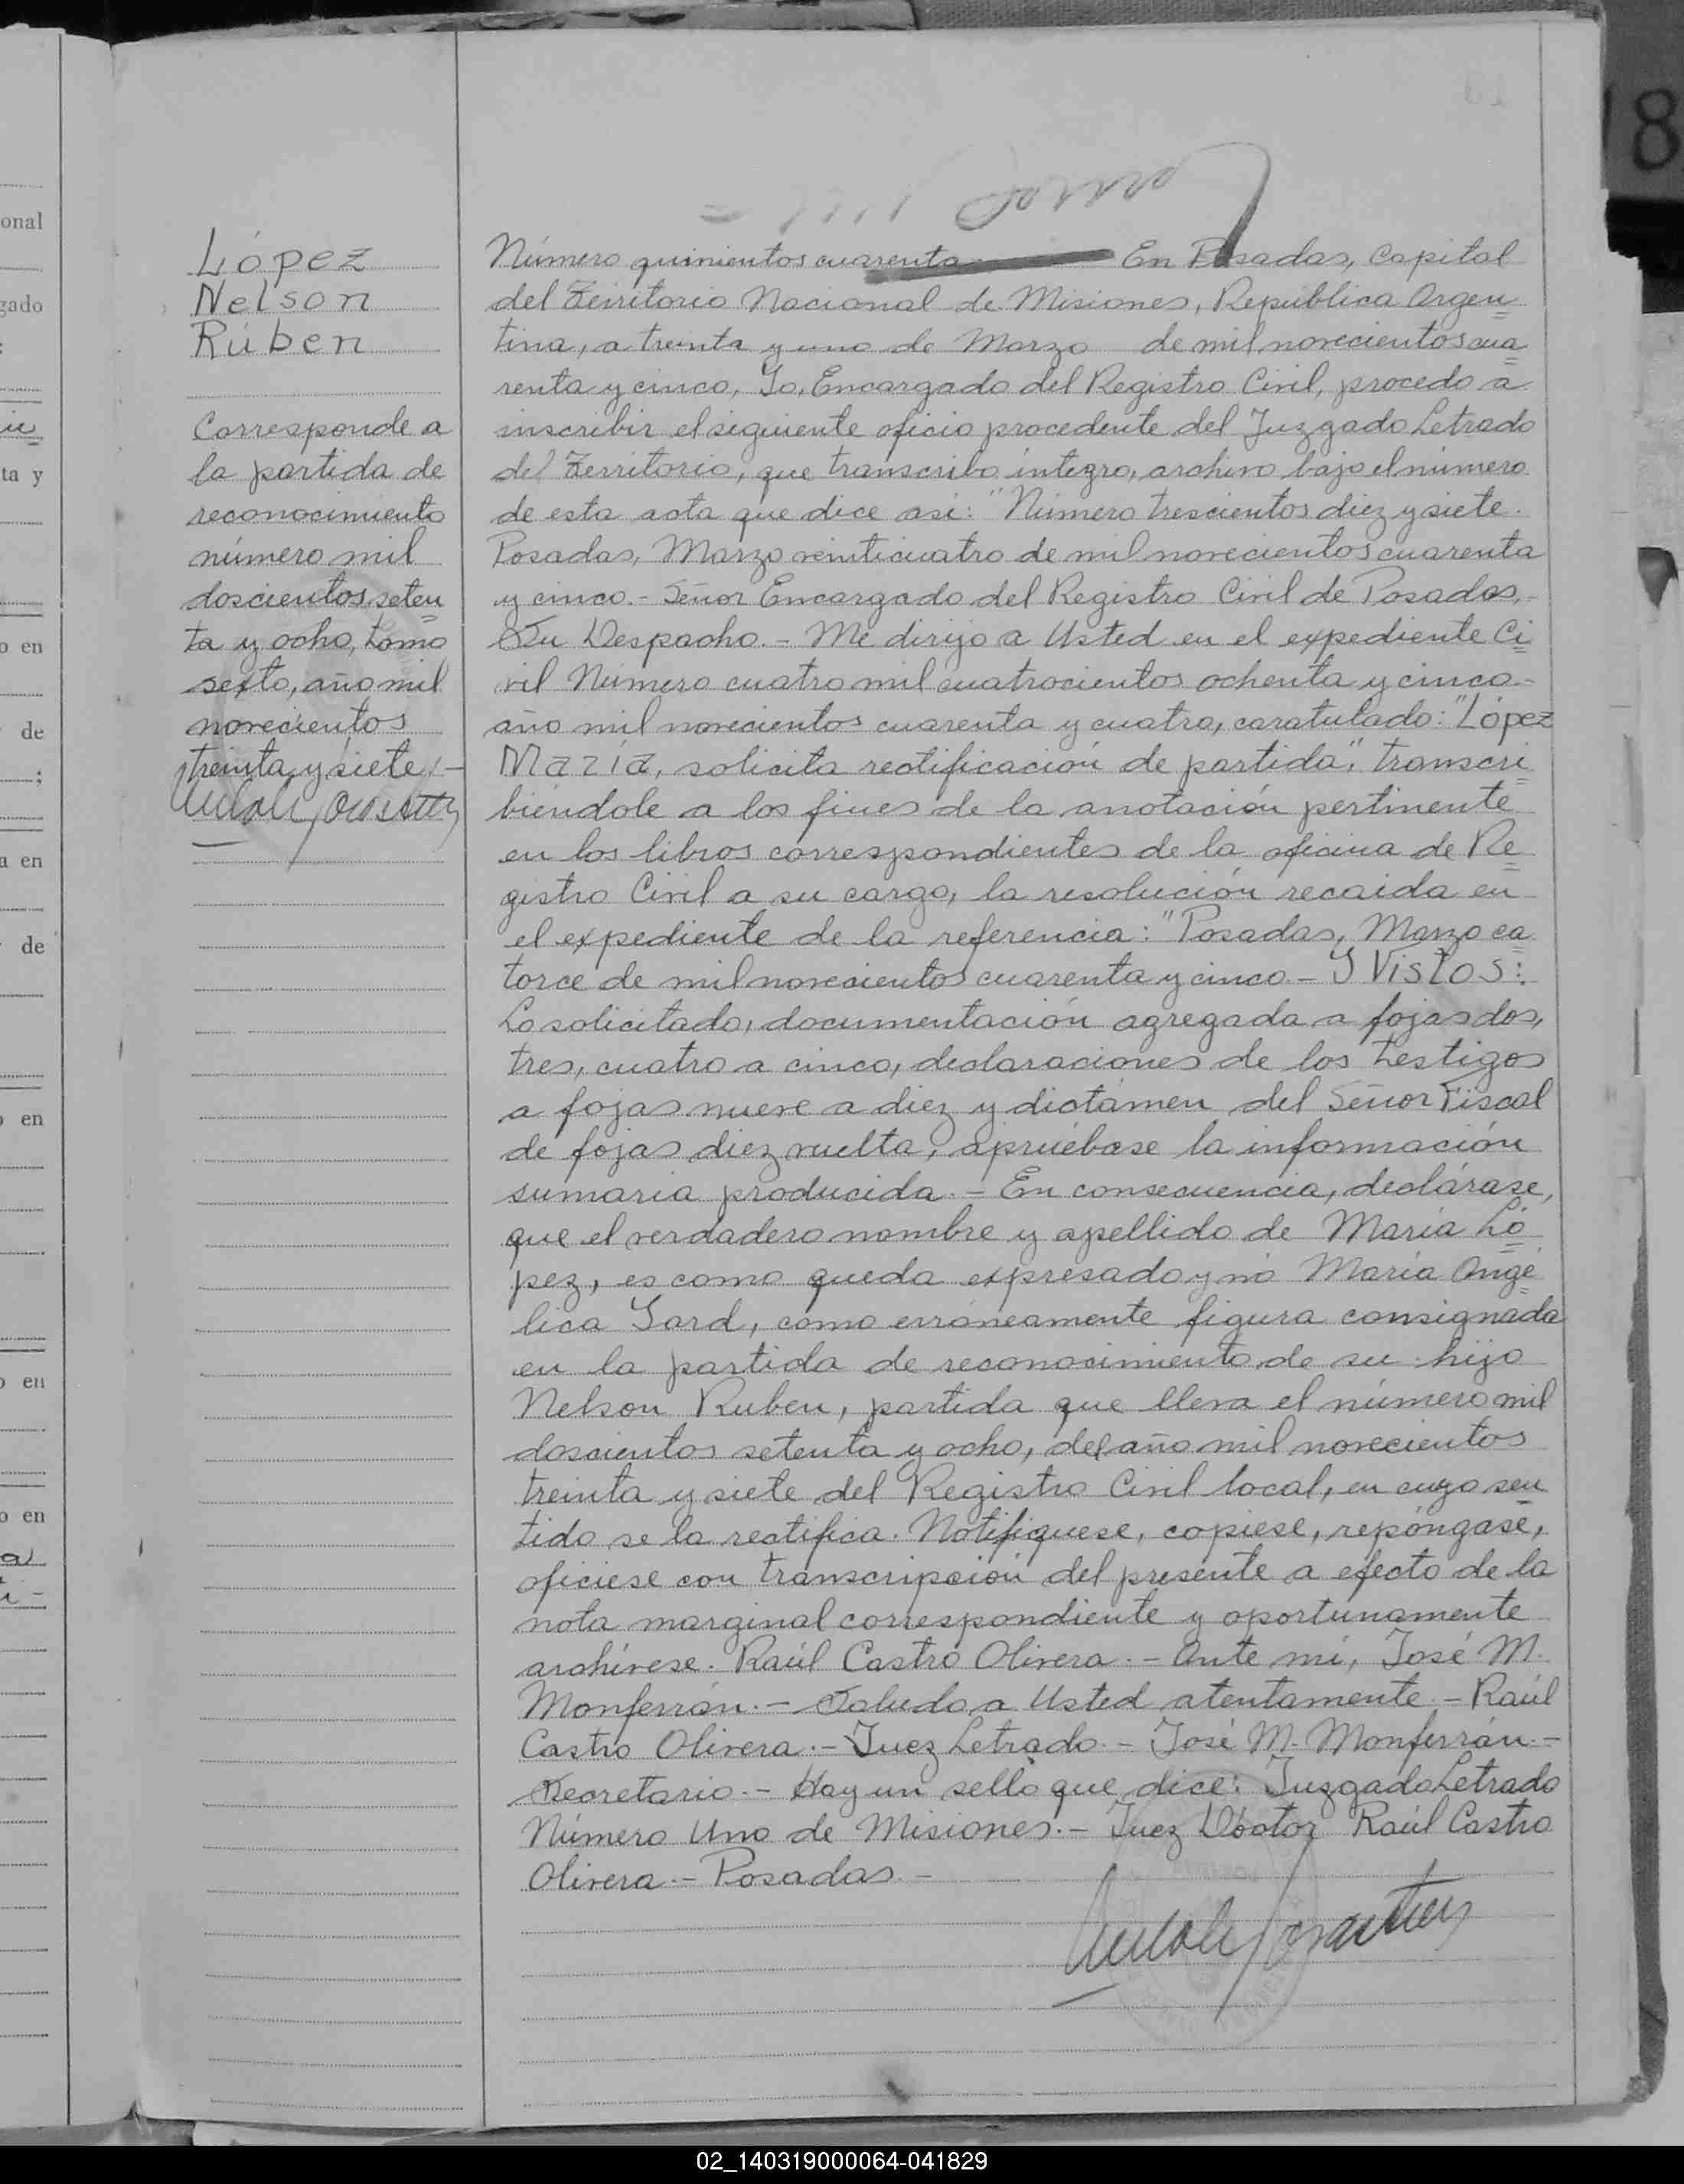 López
Nelson
Rúben
Corresponde a
la partida de
reconocimiento
número mil
doscientos seten
ta y ocho, tomo
sexto, año mil
novecientos
treinta y siete.-
Número quinientos cuarenta En Posadas, Capital
del Territorio Nacional de Misiones, República Argen
tina, a treinta y uno de Marzo de mil novecientos cua
renta y cinco, Yo, Encargado del Registro Civil, procedo a
inscribir el siguiente oficio procedente del Juzgado Letrado
del Territorio, que transcribo íntegro, archivo bajo el número
de esta acta que dice asi: "Número trescientos diez y siete.
Posadas, Marzo veinticuatro de mil novecientos cuarenta
y cinco.- Señor Encargado del Registro Civil de Posadas.-
Su Despacho.- Me dirijo a Usted en el expediente Ci
vil Número cuatro mil cuatrocientos ochenta y cinco-
año mil novecientos cuarenta y cuatro, caratulado: "López
María, solicita rectificación de partida", transcri
biéndole a los fines de la anotación pertinente
en los libros correspondientes de la oficina de Re
gistro Civil a su cargo, la resolución recaida en
el expediente de la referencia: "Posadas, Marzo ca
torce de mil novecientos cuarenta y cinco - Y Vistos:
Lo solicitado, documentación agregada a fojas dos,
tres, cuatro a cinco, declaraciones de los testigos
a fojas nueve a diez y dictámen del Señor Fiscal
de fojas diez vuelta, apruébase la información
sumaria producida.- En consecuencia, declárase,
que el verdadero nombre y apellido de María Ló
pez, es como queda expresado y nó María Angé
lica Yard, como erróneamente figura consignada
en la partida de reconocimiento de su hijo
Nelson Ruben, partida que lleva el número mil
doscientos setenta y ocho, del año mil novecientos
treinta y siete del Registro Civil local, en cuyo sen
tido se la rectifica. Notifíquese, copiese, repóngase,
ofíciese con transcripción del presente a efecto de la
nota marginal correspondiente y oportunamente
archívese. Raúl Castro Olivera.- Ante mí, José M.
Monferrán.- Saludo a Usted atentamente.- Raúl
Castro Olivera.- Juez Letrado.- José M. Monferrán.-
Secretario.- Hay un sello que dice: Juzgado Letrado
Número Uno de Misiones.- Juez Doctor Raúl Castro
Olivera.- Posadas.-
onal
gado
ta y
o en
de
a en
de
o en
o en
o en
8
02_140319000064-041829